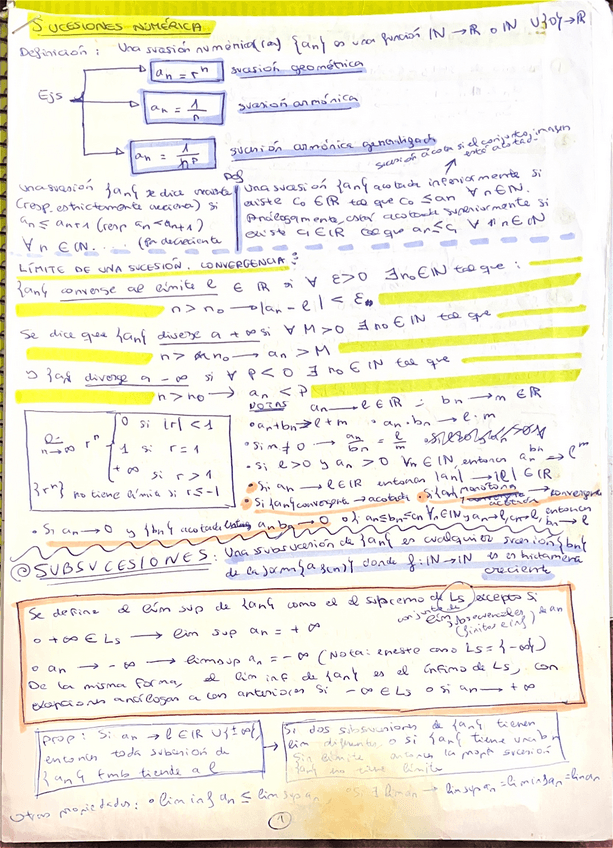 SUCESIONES NUMÉRICA
Definición: Una sucesión numérica(an) {an} es una función IN → IR o IN U{0} → IR
Ejs
an = rⁿ sucesión geométrica
an = 1/n sucesión armónica
an = 1/nᴾ sucesión armónica generalizada
sucesión acotada si el conjunto imagen
está acotado
Def
Una sucesión {an} se dice creciente
(resp. estrictamente creciente) si
an ≤ an+1 (resp an < an+1)
∀n ∈ IN.... decreciente
Una sucesión {an} acotada inferiormente si
existe c₀ ∈ IR tal que c₀ ≤ an ∀n∈IN.
Análogamente, está acotada superiormente si
existe c₁∈IR tal que an≤c₁ ∀n∈IN
LÍMITE DE UNA SUCESIÓN. CONVERGENCIA:
{an} converge al límite l ∈ IR si ∀ ε>0 ∃n₀∈IN tal que:
n > n₀ → |an - l| < ε
Se dice que {an} diverge a +∞ si ∀ M>0 ∃n₀∈IN tal que
n > n₀ → an > M
y {an} diverge a -∞ si ∀ P<0 ∃n₀∈IN tal que
n > n₀ → an < P
NOTAS an → l ∈ IR ; bn → m ∈ IR
• an+bn → l+m • an·bn → l·m
• Si m≠0 → an/bn = l/m
• Si l>0 y an>0 ∀n∈IN, entonces anᵇⁿ → lᵐ
• Si an → l∈IR entonces |an| → |l| ∈ IR
• Si {an} convergente → acotada • Si {an} monótona acotada → convergente
lim n→∞ rⁿ
0 si |r|<1
1 si r=1
+∞ si r>1
{rⁿ} no tiene límite si r≤-1
• Si an → 0 y {bn} acotada an bn → 0
SUBSUCESIONES: Una subsucesión de {an} es cualquier sucesión {bn}
de la forma {af(n)} donde f: IN→IN es estrictamente
creciente
Se define el lím sup de {an} como el supremo de Ls excepto si
conjunto de
lím subsecuentes
(finitos e inf) de an
o +∞ ∈ Ls → lim sup an = +∞
o an → -∞ → lim sup an = -∞ (Nota: en este caso Ls = {-∞})
De la misma forma, el lim inf de {an} es el ínfimo de Ls, con
excepciones análogas a las anteriores si -∞ ∈ Ls o si an → +∞
prop: Si an → l ∈ IR U{±∞}
entonces toda subsucesión de
{an} tmb tiende a l
Si dos subsucesiones de {an} tienen
lím diferentes, o si {an} tiene una
sin límite entonces la propia sucesión
{an} no tiene límite
otras propiedades: • lim inf an ≤ lim sup an, • Si ∃ lim an → lim sup an = lim inf an = lim an
1